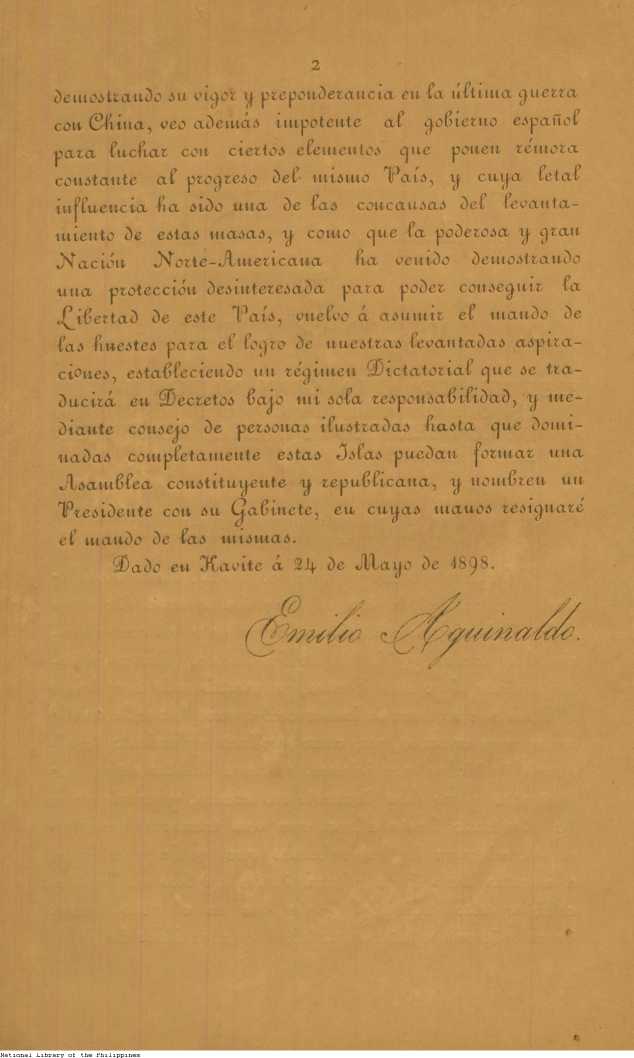 2
demostrando su vigor y preponderancia en la última guerra
con China, veo además impotente al gobierno español
para luchar con ciertos elementos que ponen rémora
constante al progreso del mismo País, y cuya letal
influencia ha sido una de las concausas del levanta-
miento de estas masas, y como que la poderosa y gran
Nación Norte-Americana ha venido demostrando
una protección desinteresada para poder conseguir la
Libertad de este País, vuelvo á asumir el mando de
las huestes para el logro de nuestras levantadas aspira-
ciones, estableciendo un régimen Dictatorial que se tra-
ducirá en Decretos bajo mi sola responsabilidad, y me-
diante consejo de personas ilustradas hasta que domi-
nadas completamente estas Islas puedan formar una
Asamblea constituyente y republicana, y nombren un
Presidente con su Gabinete, en cuyas manos resignaré
el mando de las mismas.
Dado en Kavite á 24 de Mayo de 1898.
Emilio Aguinaldo.
National Library of the Philippines